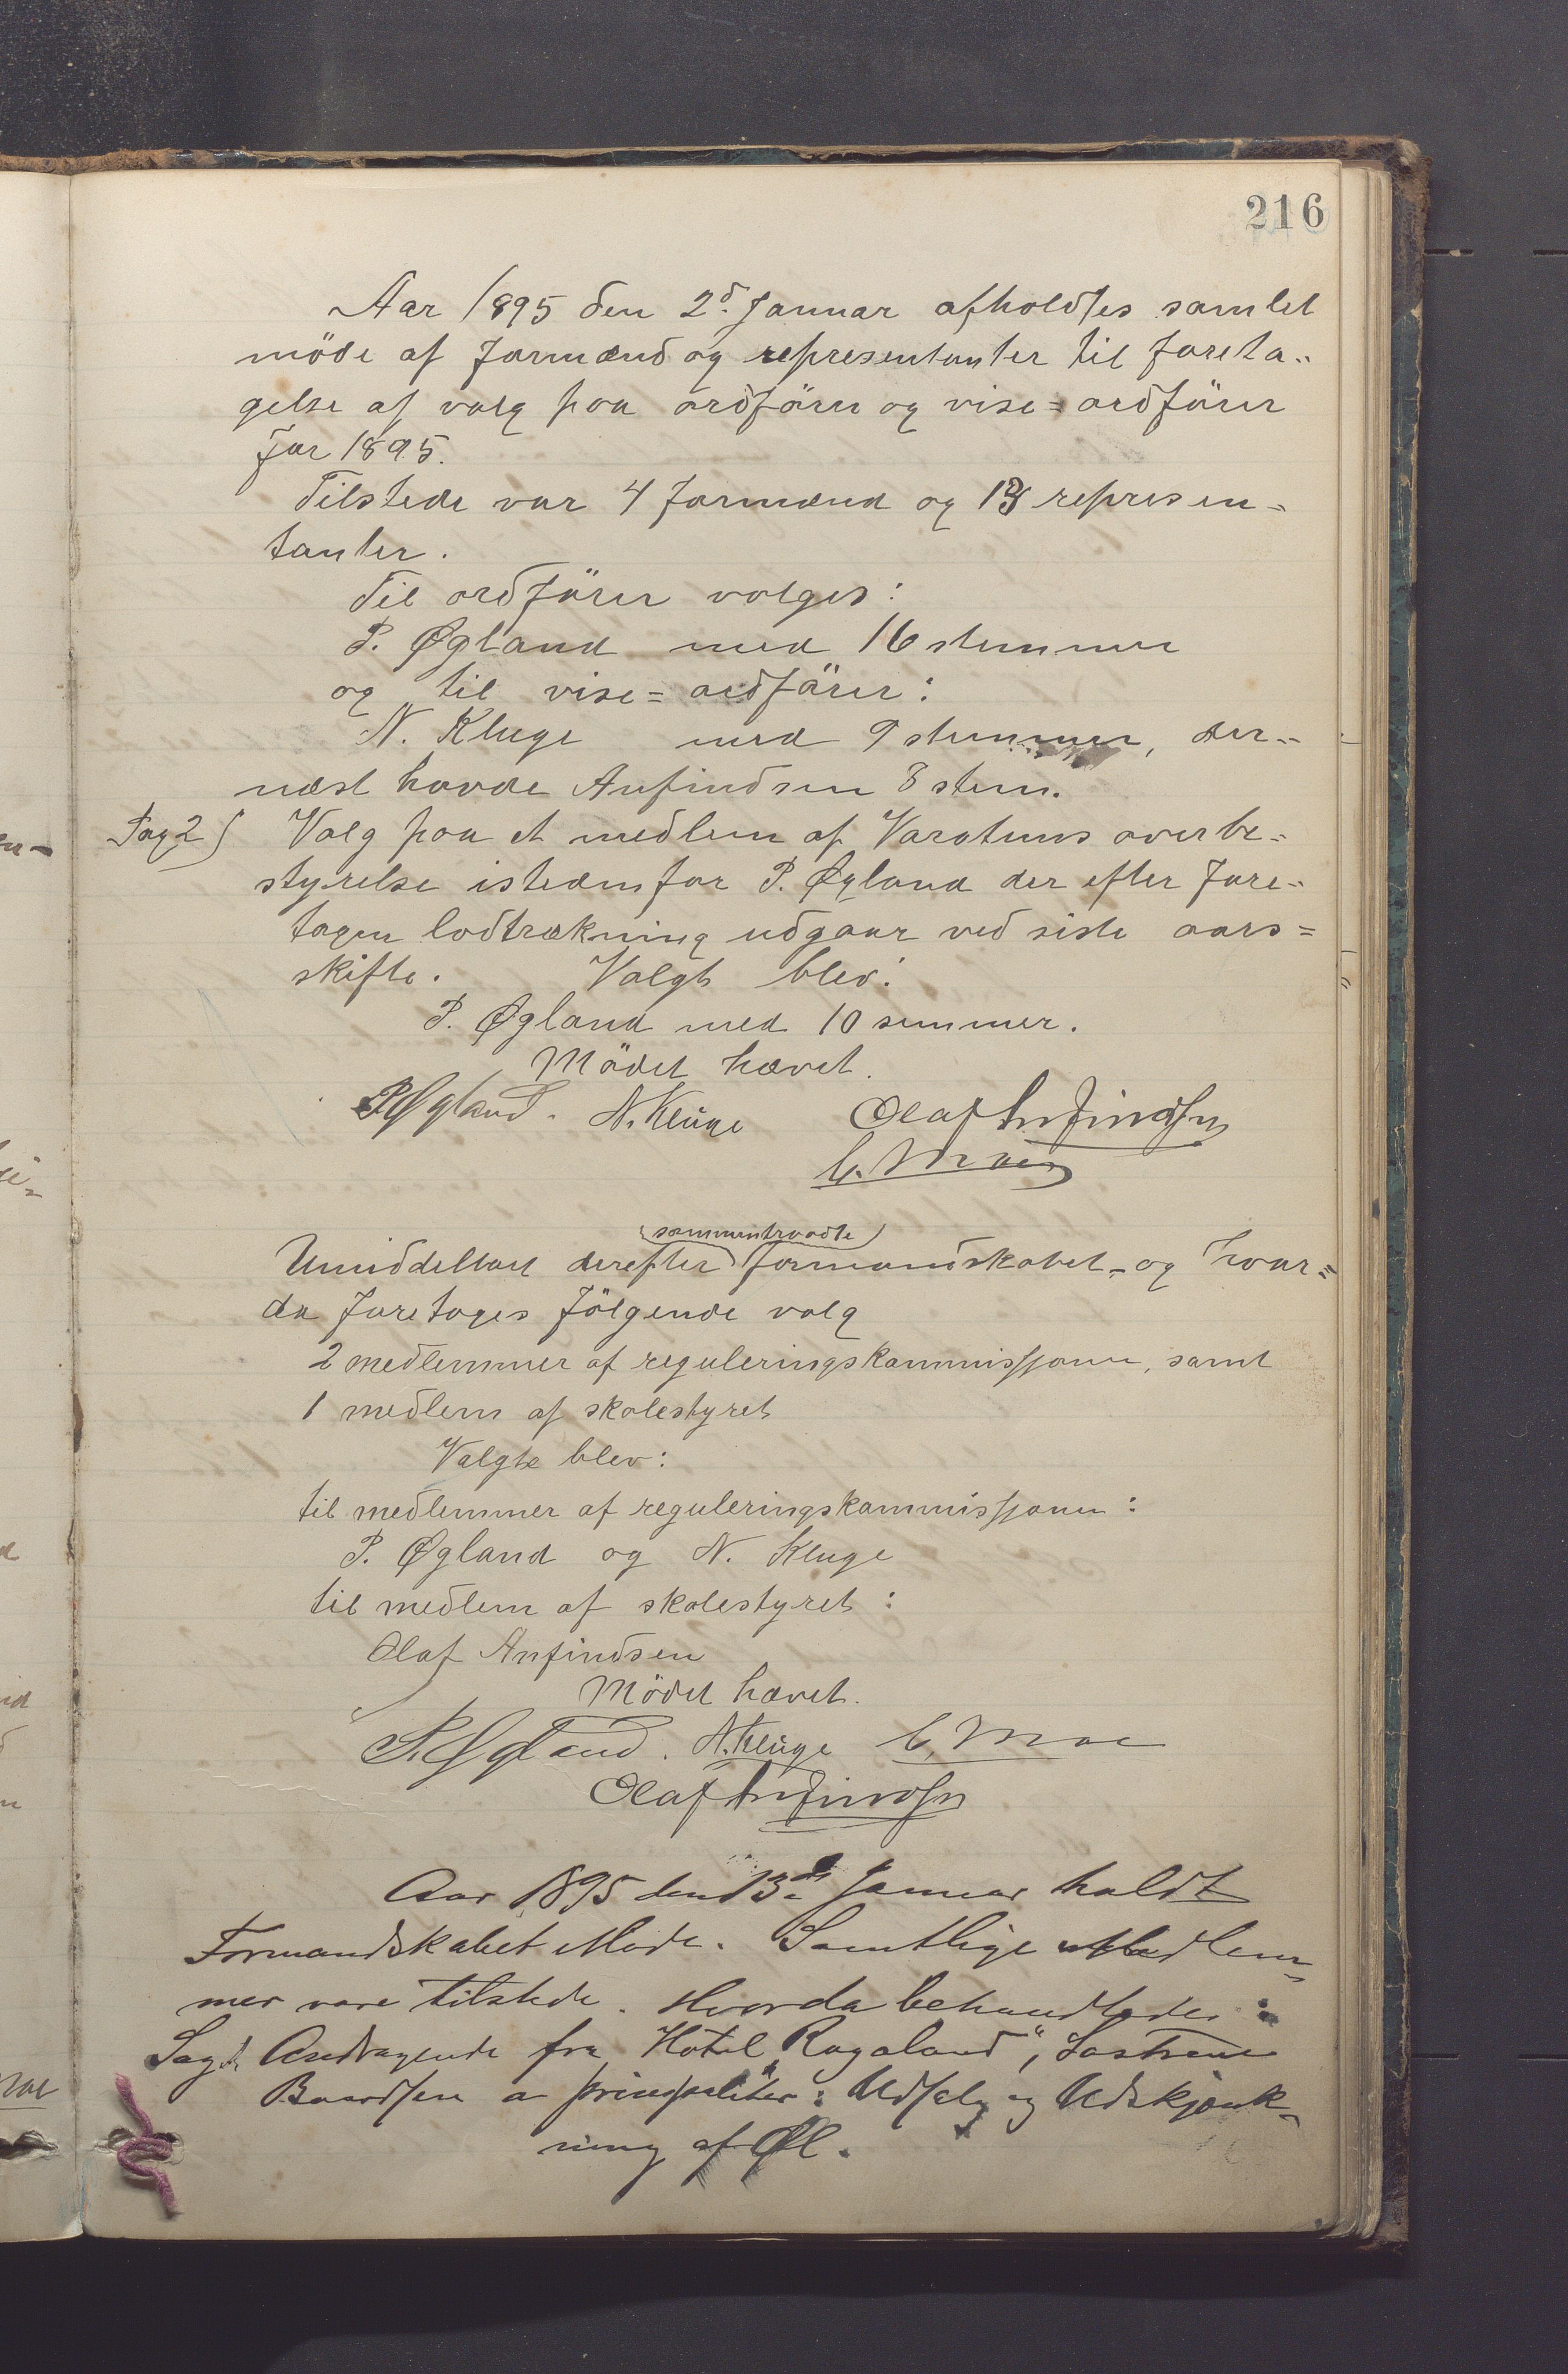 216
Aar 1895 den 2d. Januar afholdtes samlet
möde af formænd og representanter til foreta-
gelse af valg paa ordförer og vise=ordförer
for 1895.
Tilstede var 4 formænd og 13 represen-
tanter.
Til ordförer valges:
P. Øgland med 16 stemmer
og til vise=ordförer:
N. Kluge med 9 stemmer, der-
næst havde Anfindsen 8 stem.
Sag 2) Valg paa et medlem af Varatuns overbe-
styrelse istedenfor P. Øgland der efter fore-
tagen lodtrækning udgaar ved siste aars=
skifte. Valgt blev:
P. Øgland med 10 semmer.
Mödet hævet.
P Øgland. N. Kluge Olaf Anfindsen
C. Moe
Umiddelbart derefter (sammentraadte) formandskabet - og hvor=
da foretoges fölgende valg
2 medlemmer af reguleringskommissjonen, samt
1 medlem af skolestyret
Valgte blev:
til medlemmer af reguleringskommissjonen:
P. Øgland og N. Kluge
til medlem af skolestyret:
Olaf Anfindsen
Mödet hævet.
P. Øgland. N. Kluge C. Moe
Olaf Anfindsen
Aar 1895 den 13de Januar holdt
Formandskabet Møde. Samtlige Medlem-
mer vare tilstede. Hvorda behandledes:
Sag 1. Andragende fra "Hotel Rogaland", Søstrene
Baardsen a prinspaliter: Udsalg og Udskjænk-
ning af Øl.